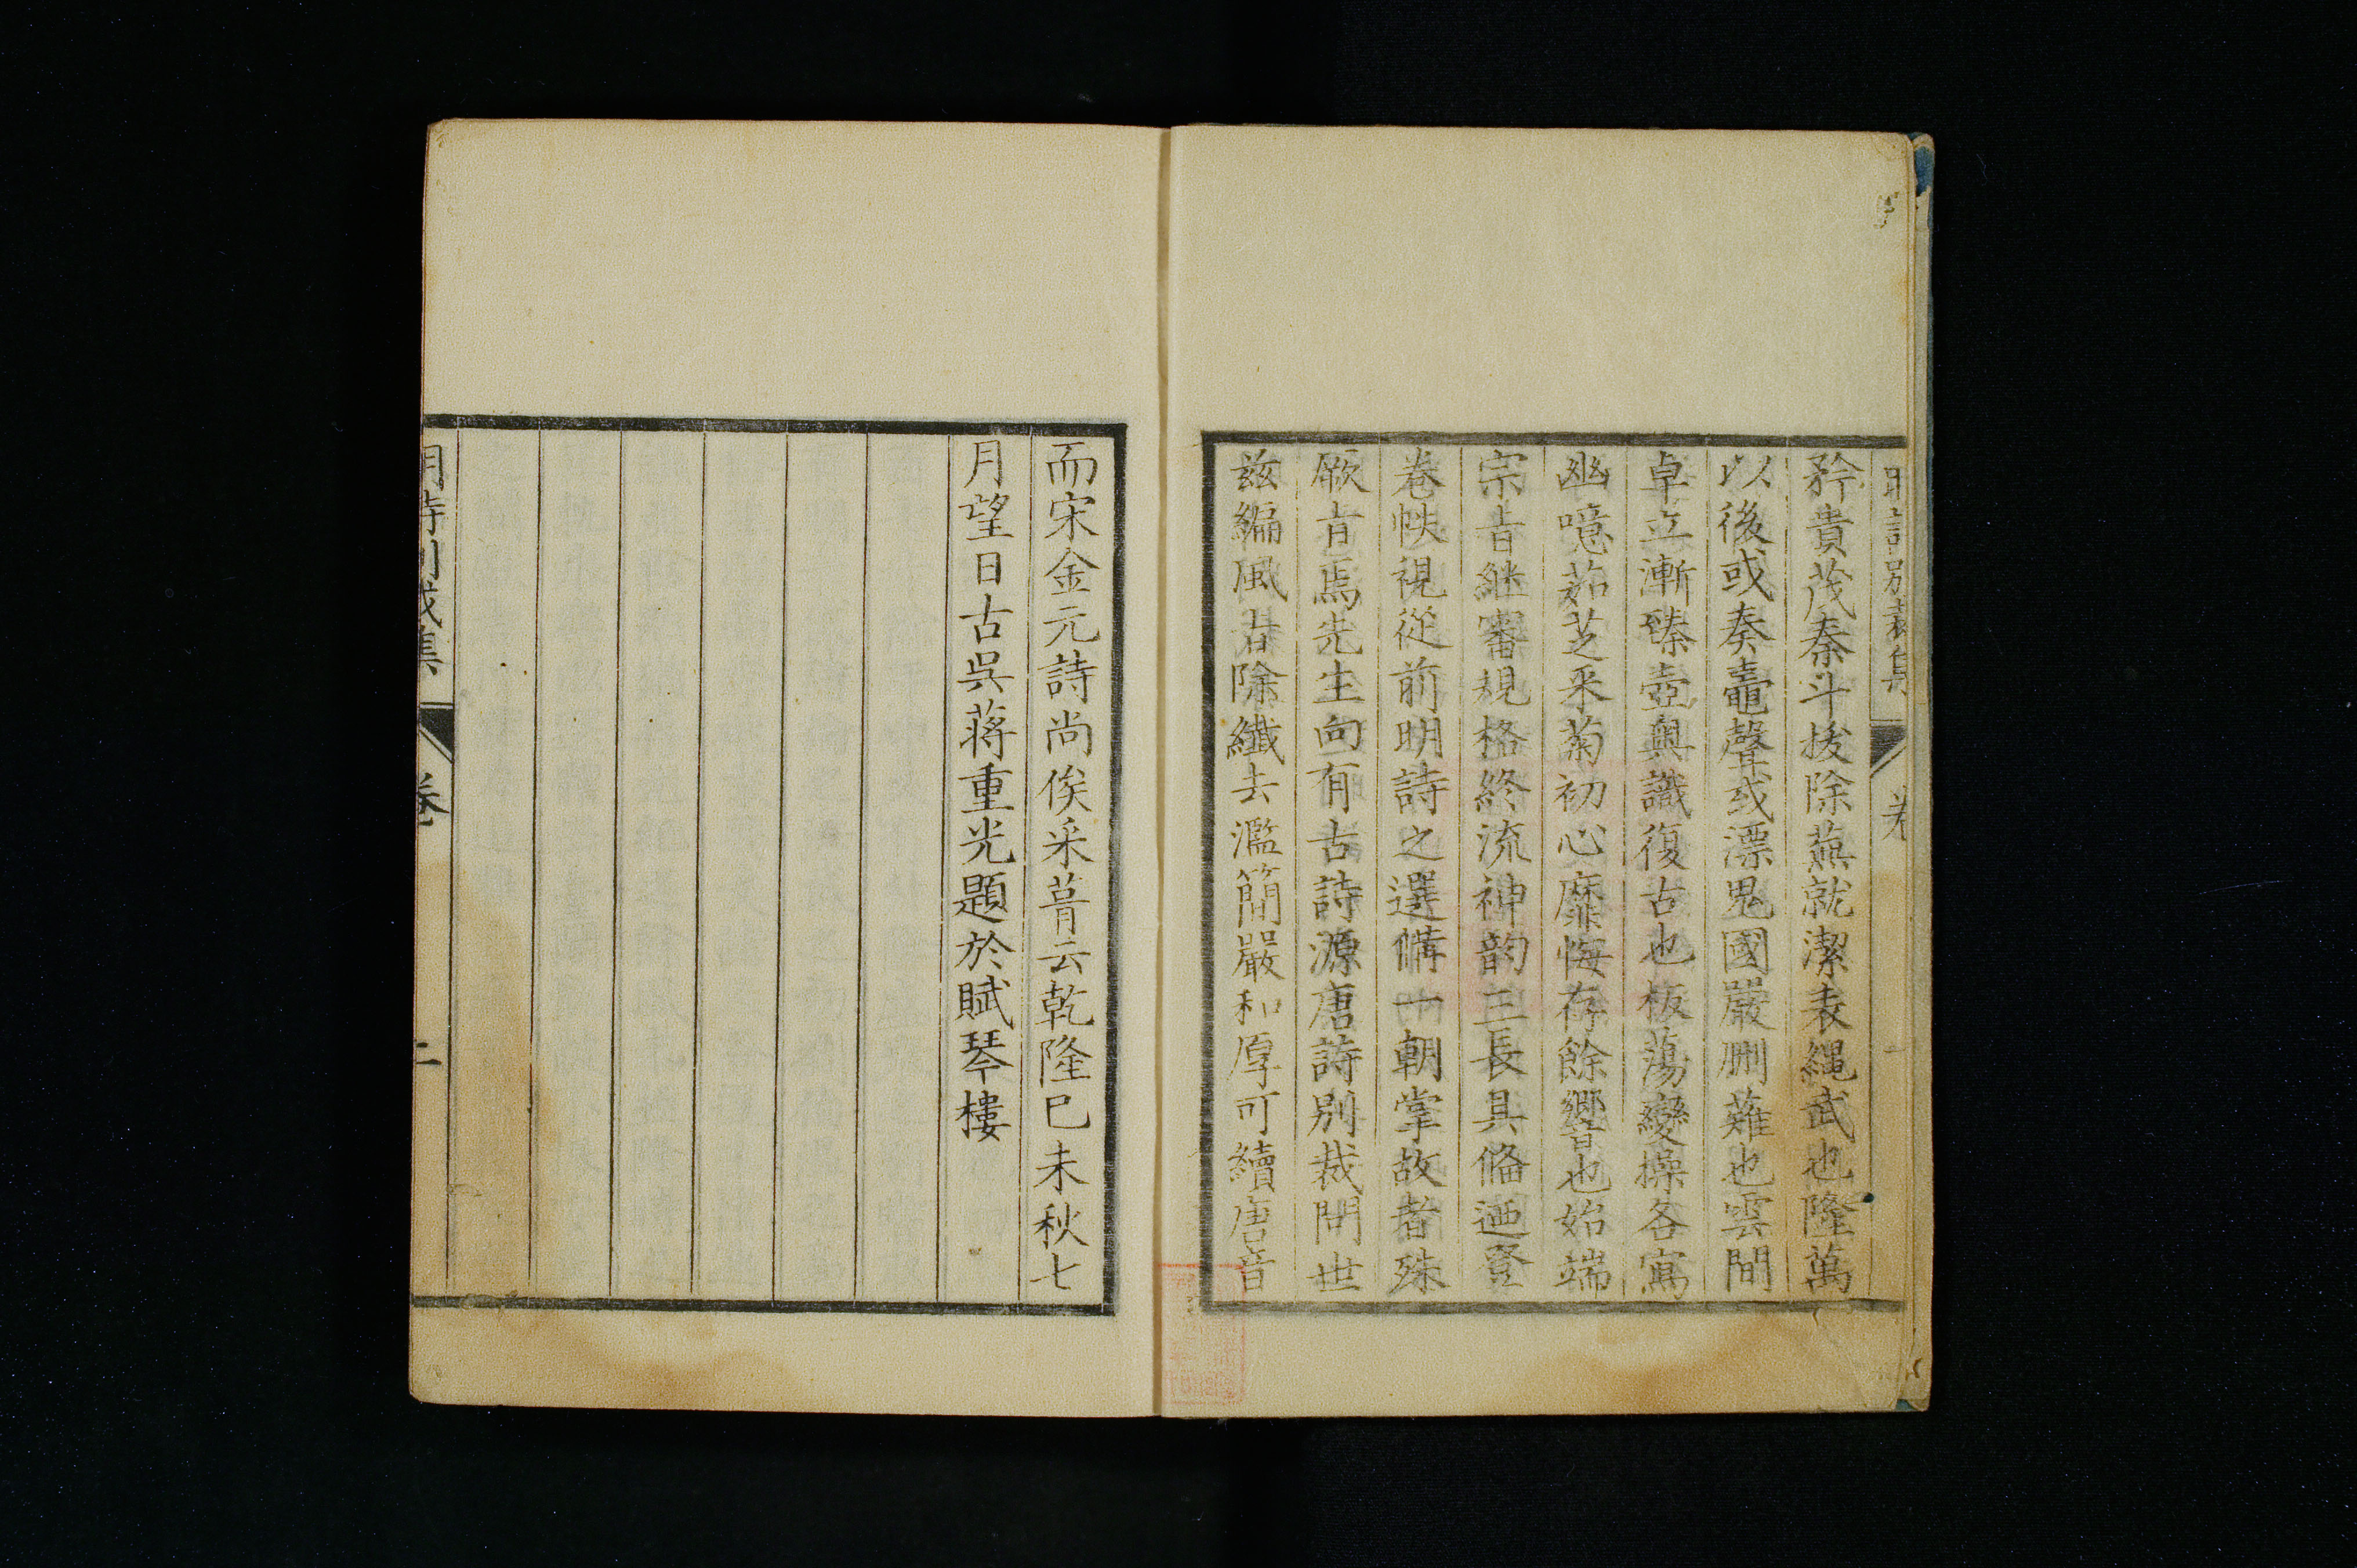 明詩別裁集 卷
矜貴茂秦斗拔除蕪就潔表繩武也隆萬
以後或奏鼃聲或漂鬼國嚴刪薙也雲間
卓立漸臻壺奧識復古也板蕩變操各寫
幽噫茹芝采菊初心靡悔存餘響也始端
宗旨繼審規格終流神韵三長具俻迺登
卷帙視從前明詩之選備一朝掌故者殊
厥旨焉先生向有古詩源唐詩別裁問世
兹編風旨除纖去濫簡嚴和厚可續唐音
而宋金元詩尚俟采葺云乾隆己未秋七
月望日古吳蔣重光題於賦琴樓
明詩別裁集 卷